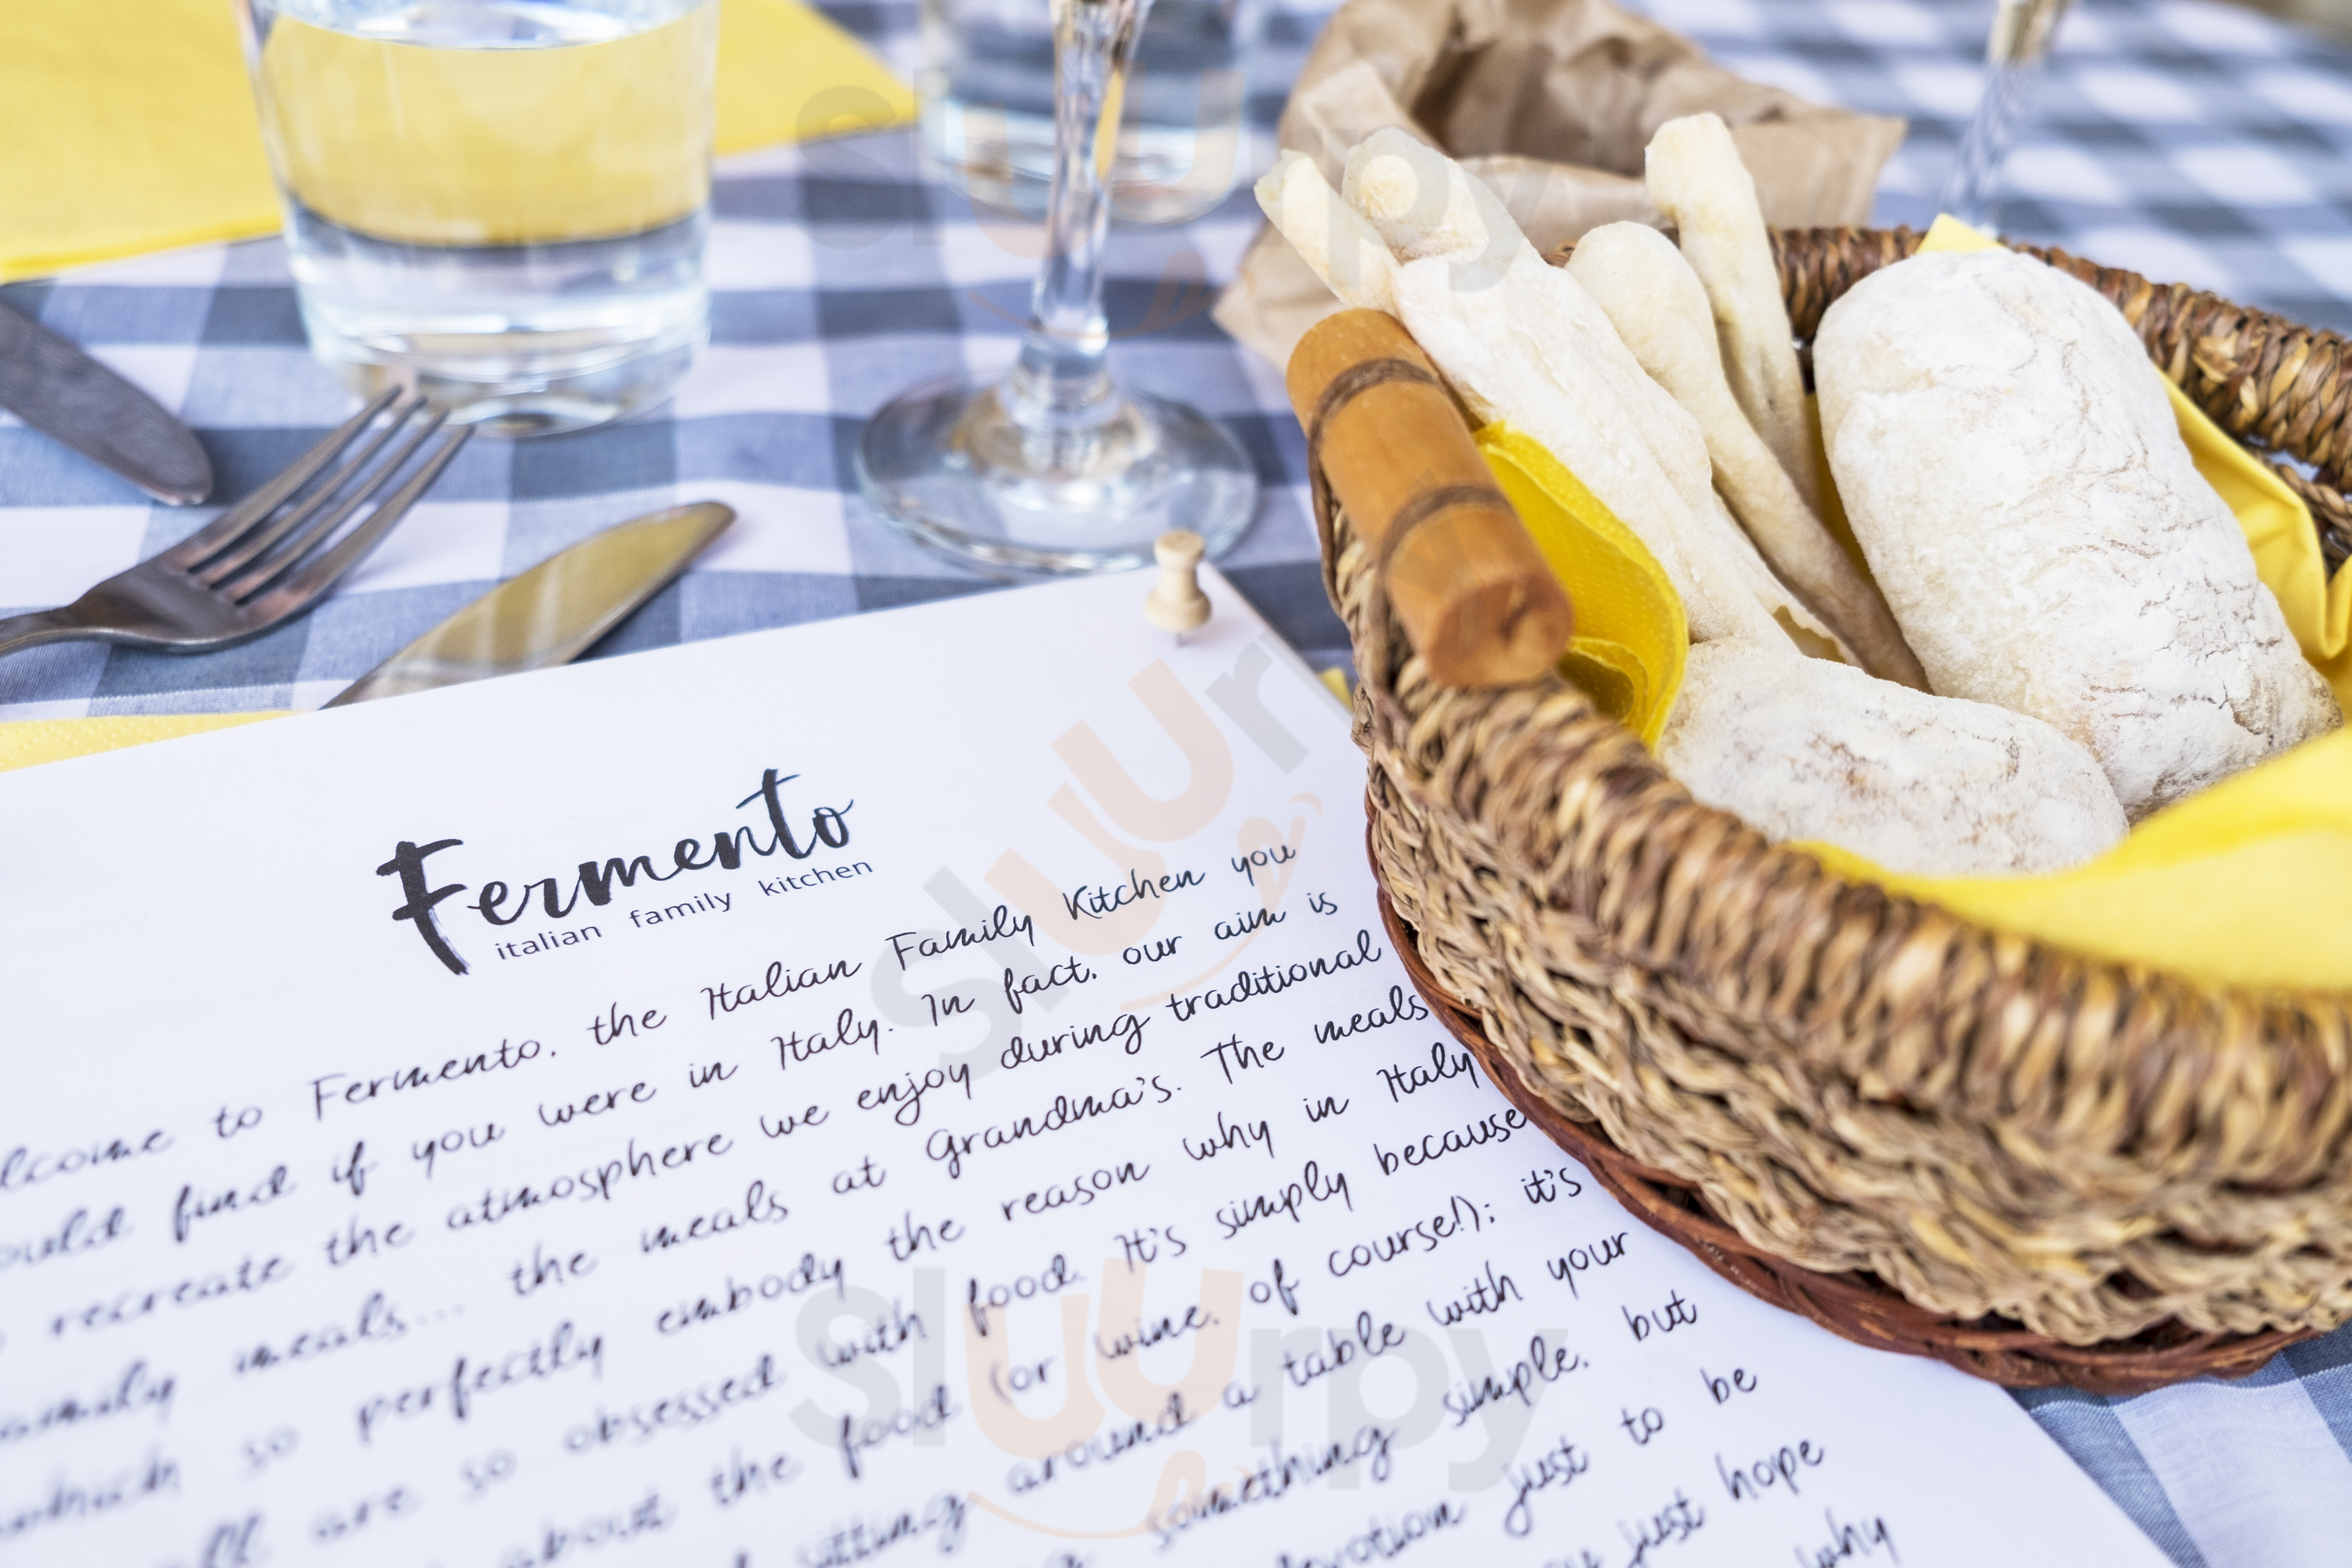 Fermento
italian family kitchen
to Fermento, the Italian Family Kitchen you
find if you were in Italy. In fact, our aim is
recreate the atmosphere we enjoy during traditional
meals... the meals at Grandma's. The meals
which so perfectly embody the reason why in Italy
are so obsessed with food. It's simply because
about the food (or wine, of course!); it's
sitting around a table with your
something simple, but
just to be
just hope
why
sluurpy
sluurpy
sluurpy